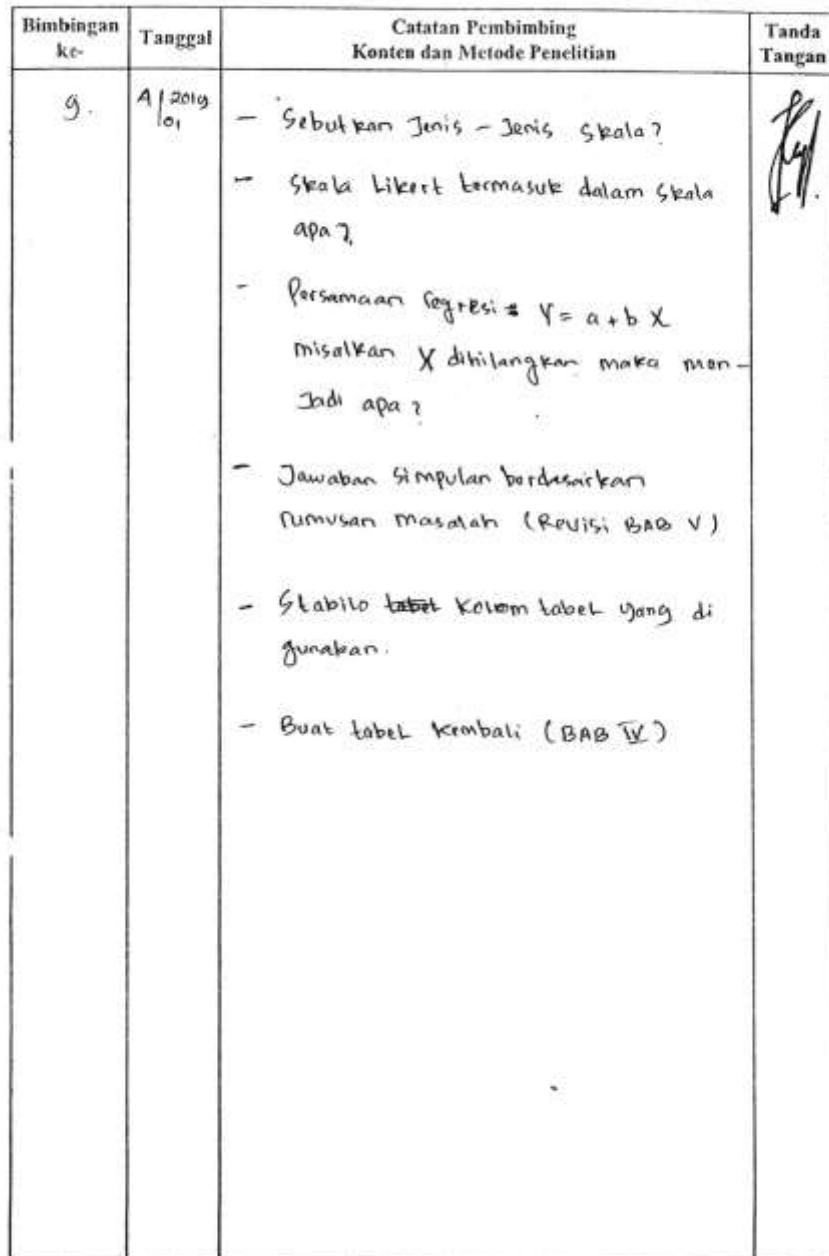 Bimbingan
ke-
Tanggal
Catatan Pembimbing
Konten dan Metode Penelitian
Tanda
Tangan
9.
2019
01
- Sebutkan Jenis - Jenis Skala?
- Skala Likert termasuk dalam Skala
apa?
- Persamaan regresi = Y = a + b X
misalkan X dihilangkan maka men-
Jadi apa?
- Jawaban Simpulan berdasarkan
rumusan masalah (Revisi BAB V)
- Stabilo tabel Kolom tabel yang di
gunakan.
- Buat tabel kembali (BAB IV)